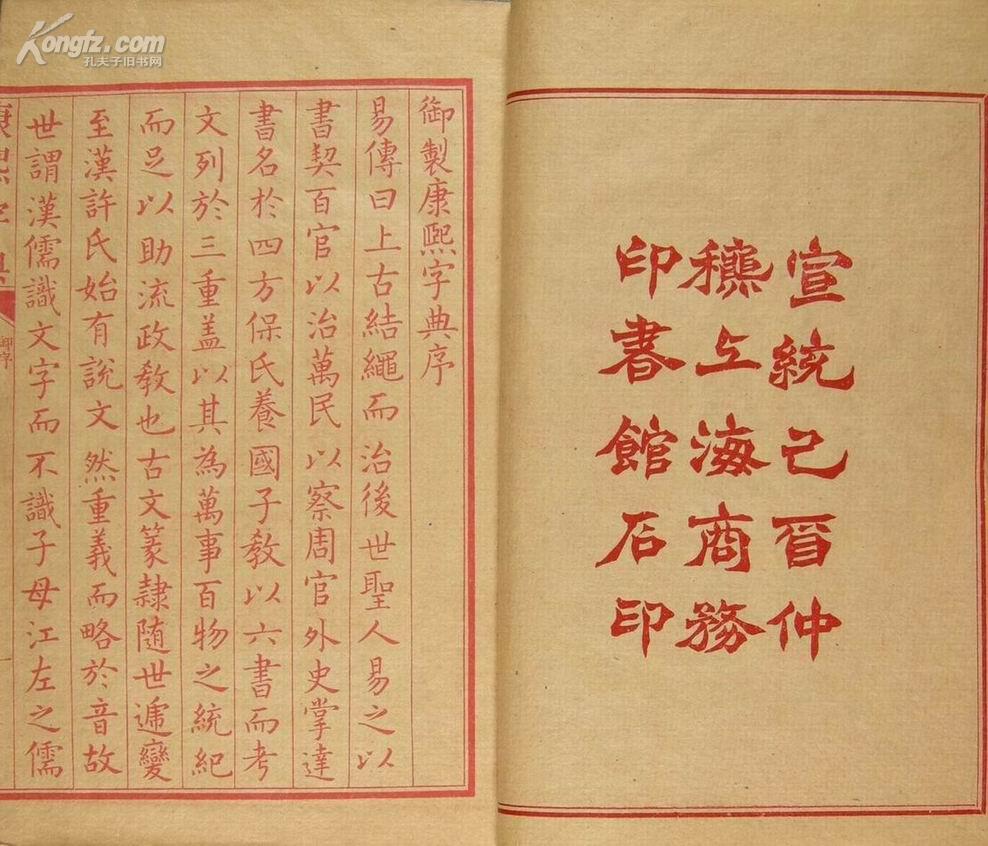 宣統己酉仲
穐上海商務
印書館石印
御製康熙字典序
易傳曰上古結繩而治後世聖人易之以
書契百官以治萬民以察周官外史掌達
書名於四方保氏養國子教以六書而考
文列於三重蓋以其為萬事百物之統紀
而足以助流政教也古文篆隷随世遞變
至漢許氏始有說文然重義而略於音故
世謂漢儒識文字而不識子母江左之儒
康熙字典
御序
Kongfz.com
孔夫子旧书网